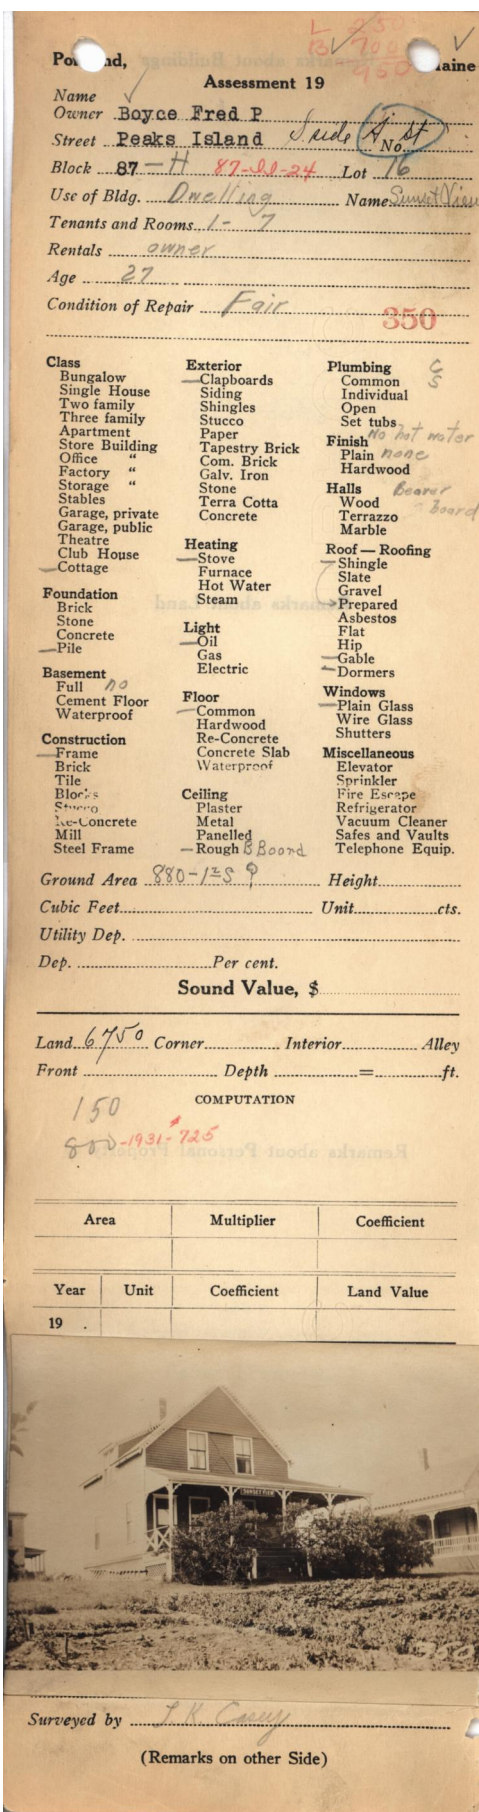 L 250
B 700
950
Po nd, aine
Assessment 19
Name
Owner Boyce Fred P
Street Peaks Island S side A St No.
Block 87-H 87-ll-24 Lot 16
Use of Bldg. Dwelling Name Sunset View
Tenants and Rooms 1 - 7
Rentals owner
Age 27
Condition of Repair Fair
350
Class
Bungalow
Single House
Two family
Three family
Apartment
Store Building
Office "
Factory "
Storage "
Stables
Garage, private
Garage, public
Theatre
Club House
Cottage
Foundation
Brick
Stone
Concrete
Pile
Basement
Full no
Cement Floor
Waterproof
Construction
Frame
Brick
Tile
Blocks
Stucco
Re-Concrete
Mill
Steel Frame
Exterior
Clapboards
Siding
Shingles
Stucco
Paper
Tapestry Brick
Com. Brick
Galv. Iron
Stone
Terra Cotta
Concrete
Heating
Stove
Furnace
Hot Water
Steam
Light
Oil
Gas
Electric
Floor
Common
Hardwood
Re-Concrete
Concrete Slab
Waterproof
Ceiling
Plaster
Metal
Panelled
Rough B Board
Plumbing C
Common S
Individual
Open
Set tubs
No hot water
Finish
Plain none
Hardwood
Halls Beaver
Wood board
Terrazzo
Marble
Roof — Roofing
Shingle
Slate
Gravel
Prepared
Asbestos
Flat
Hip
Gable
Dormers
Windows
Plain Glass
Wire Glass
Shutters
Miscellaneous
Elevator
Sprinkler
Fire Escape
Refrigerator
Vacuum Cleaner
Safes and Vaults
Telephone Equip.
Ground Area 880-1 S P Height
Cubic Feet Unit cts.
Utility Dep.
Dep. Per cent.
Sound Value, $
Land 6750 Corner Interior Alley
Front Depth = ft.
COMPUTATION
150
800 -1931- $725
Area Multiplier Coefficient
Year Unit Coefficient Land Value
19 .
SUNSET VIEW
350
Surveyed by J. K. Casey
(Remarks on other Side)